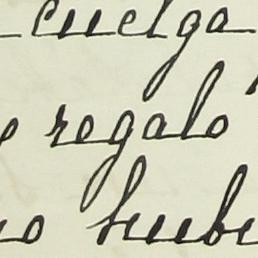 cuelga
e regaló
no hube